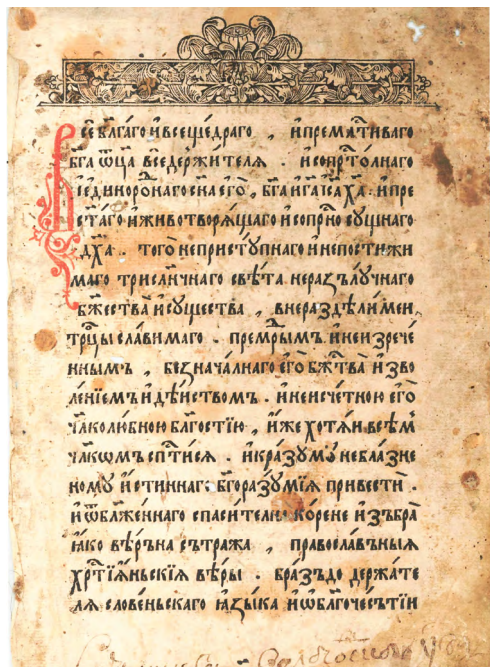 Всѐблга́го и҆ всещедраго , и҆премлⷭ҇тиваго
бг҃а ѿц҃а вседержи́телѧ . и҆сопрⷭ҇то́лнаго
и҆ є҆динороⷣнаго сн҃а є҆гѡ̀ , бг҃а и҆ і҆са х҃а . и҆пре
ст҃а́го и҆животворѧ́щаго и҆сопрⷭ҇но сущнаго
дх҃а . того̀ непристꙋ́пнаго и҆непостижи
маго трисл҃нчнаго свѣ́та неразъ лꙋ́чнаго
бжества̀ и҆сꙋщества̀ , внераздѣли́мѣи
трⷪ҇цы сла́вимаго . премⷣрымъ и҆неизрече́
ннымъ , безнача́лнаго є҆гѡ̀ бжⷭ҇тва̀ и҆зво
ле́нїемъ и҆дѣ́йствомъ . и҆неисче́тною є҆гѡ̀
чл҃колю́бною бл҃гостїю , и҆́же хотѧ́и всѣ́мъ
чл҃кѡмъ спⷭ҇ти́сѧ . и҆кра́зꙋмꙋ неблазне
ному и҆́стиннаг: бг҃оразꙋ́мїѧ привестѝ .
и҆ ѡ҆блаже́ннаго спаси́телнѡ ко́рене и҆збра
ꙗ҆́ко вѣ́рьна съ́тража , правосла́вьныѧ
хрⷭ҇тїѧ́ньскїѧ вѣ́ры . бразъдо держа́те
лѧ слове́ньскаго ꙗ҆зы́ка и҆ ѡ҆бл҃гочесъ́тїи